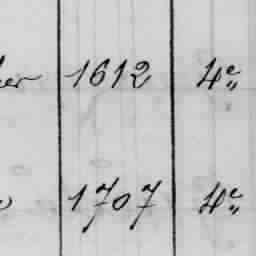 er 1612 4e
1707 4e